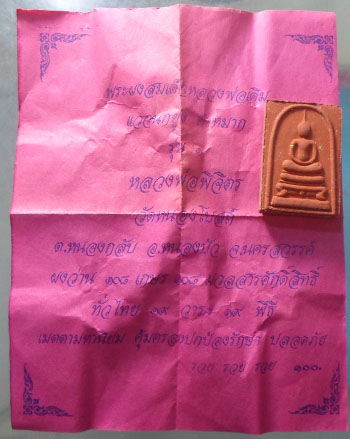 พระผงสมเด็จหลวงพ่อเดิม
แจกทาน
รุ่น ๑
หลวงพ่อพิจิตร
วัดหนองโพสต์
ต.หนองกลับ อ.หนองบัว จ.นครสวรรค์
ผงว่าน ๑๐๘ เกษร ๑๐๘ มวลสารศักดิ์สิทธิ์
ทั่วไทย ๑๙ วาระ ๑๙ พิธี
เมตตามหานิยม คุ้มครองปกป้องรักษา ปลอดภัย
รวย รวย รวย ๑๐๐.